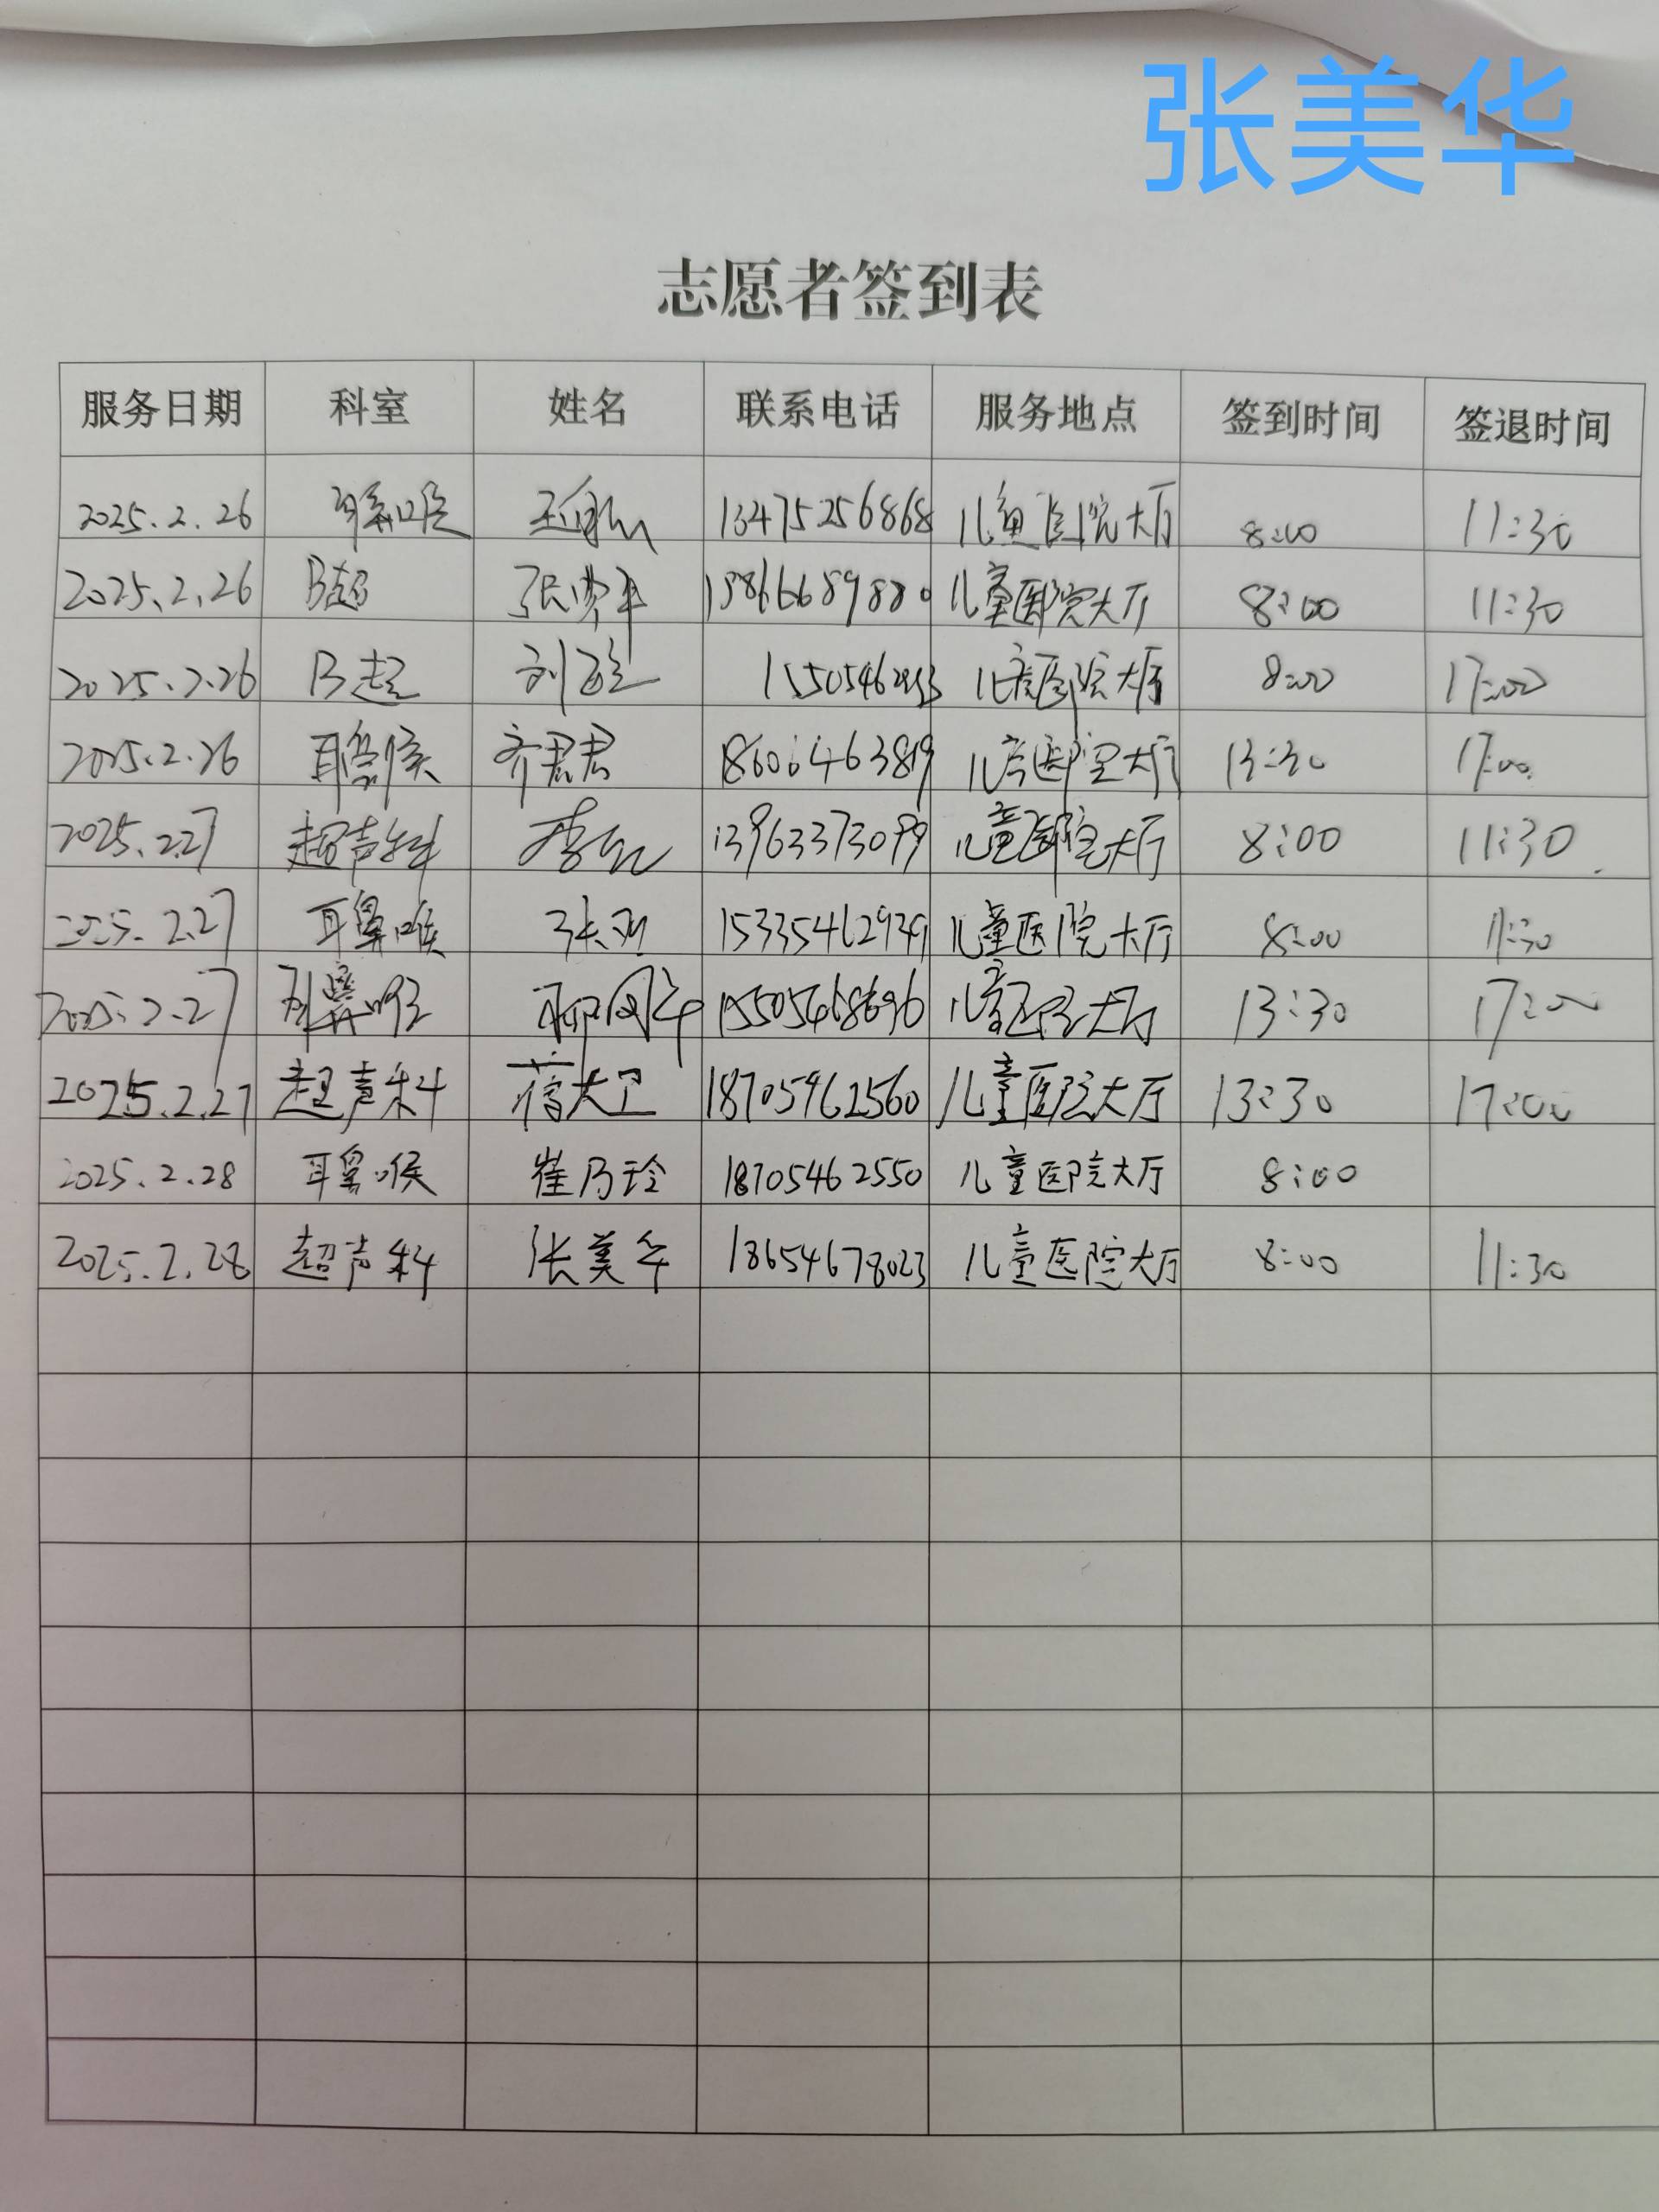 张美华
志愿者签到表
服务日期 科室 姓名 联系电话 服务地点 签到时间 签退时间
2025.2.26 耳鼻喉 13475256868 儿童医院大厅 8:00 11:30
2025.2.26 B超 15866689880 儿童医院大厅 8:00 11:30
2025.2.26 B超 儿童医院大厅 8:00 17:00
2025.2.26 耳鼻喉 齐君君 18606463819 儿童医院大厅 13:30 17:00
2025.2.27 超声科 13963373099 儿童医院大厅 8:00 11:30
2025.2.27 耳鼻喉 15335462939 儿童医院大厅 8:00 11:30
2025.2.27 耳鼻喉 15505468696 儿童医院大厅 13:30 17:00
2025.2.27 超声科 蒋大卫 18705462560 儿童医院大厅 13:30 17:00
2025.2.28 耳鼻喉 崔乃玲 18705462550 儿童医院大厅 8:00
2025.2.28 超声科 张美华 18654678023 儿童医院大厅 8:00 11:30